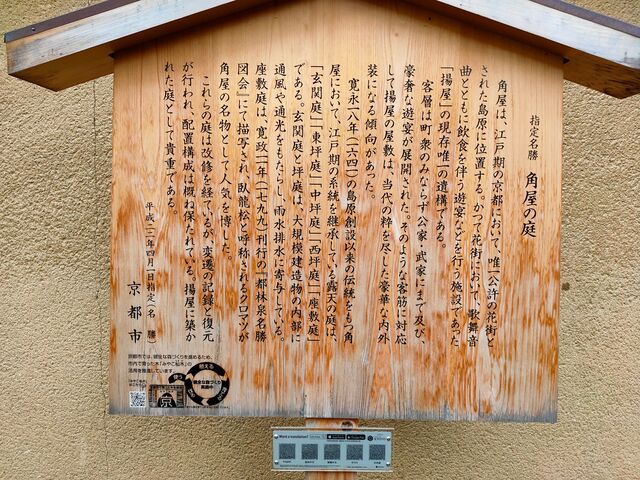 指定名勝　角屋の庭
角屋は、江戸期の京都において、唯一公許の花街と
された島原に位置する。かつて花街において、歌舞音
曲とともに飲食を伴う遊宴などを行う施設であった
「揚屋」の現存唯一の遺構である。
客層は町衆のみならず公家・武家にまで及び、
豪奢な遊宴が展開された。そのような客筋に対応
して揚屋の屋敷は、当代の粋を尽した豪華な内外
装になる傾向があった。
寛永一八年（一六四一）の島原創設以来の伝統をもつ角
屋において、江戸期の系統を継承している露天の庭は、
「玄関庭」「東坪庭」「中坪庭」「西坪庭」「座敷庭」
である。玄関庭と坪庭は、大規模建造物の内部に
通風や通光をもたらし、雨水排水に寄与している。
座敷庭は、寛政一一年（一七九九）刊行の「都林泉名勝
図会」にて描写され、臥龍松と呼称されるクロマツが
角屋の名物として人気を博した。
これらの庭は改修を経ているが、変遷の記録と復元
が行われ、配置構成は概ね保たれている。揚屋に築か
れた庭として貴重である。
平成二二年四月一日指定（名　勝）
京都市
京都市では、健全な森づくりを進めるため、
市内で育った木「みやこ杣木」の
活用を推進しています。
植える
健全な森づくり
実施中
使う
京
Want a translation?